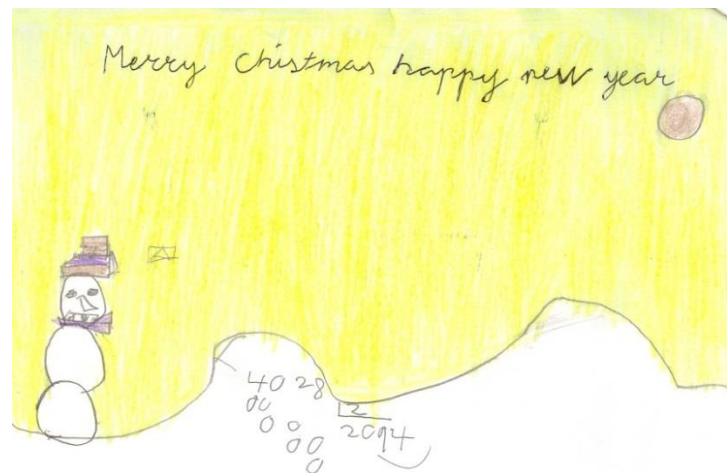 Merry Chistmas happy new year
4028
00
2
0 0
2094
00
0